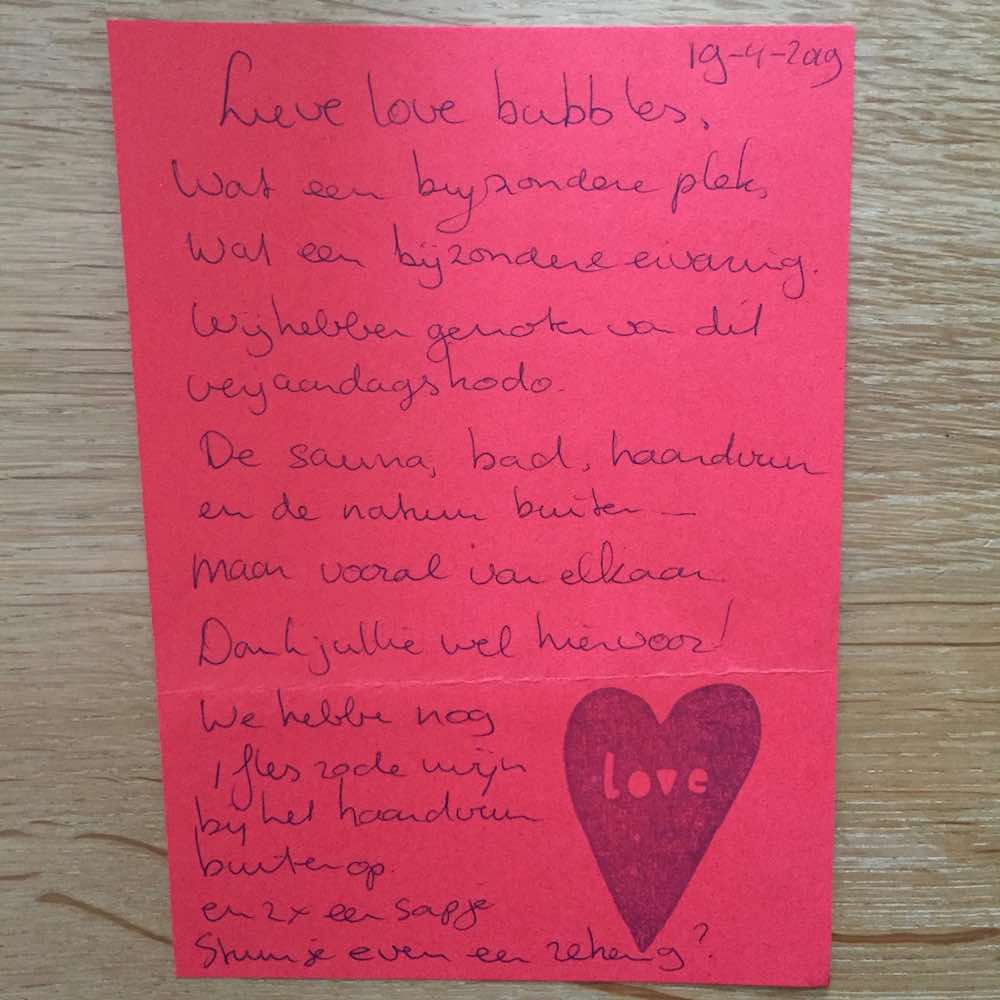 19-4-2019
Lieve love bubbles,
Wat een bijzondere plek,
Wat een bijzondere ervaring.
Wij hebben genoten van dit
verjaardagskado.
De sauna, bad, haardvuur
en de natuur buiten —
maar vooral van elkaar.
Dank jullie wel hiervoor!
We hebbe nog
1 fles rode wijn
bij het haardvuur
buiten op.
en 2x een sapje
Stuur je even een rekening?
love